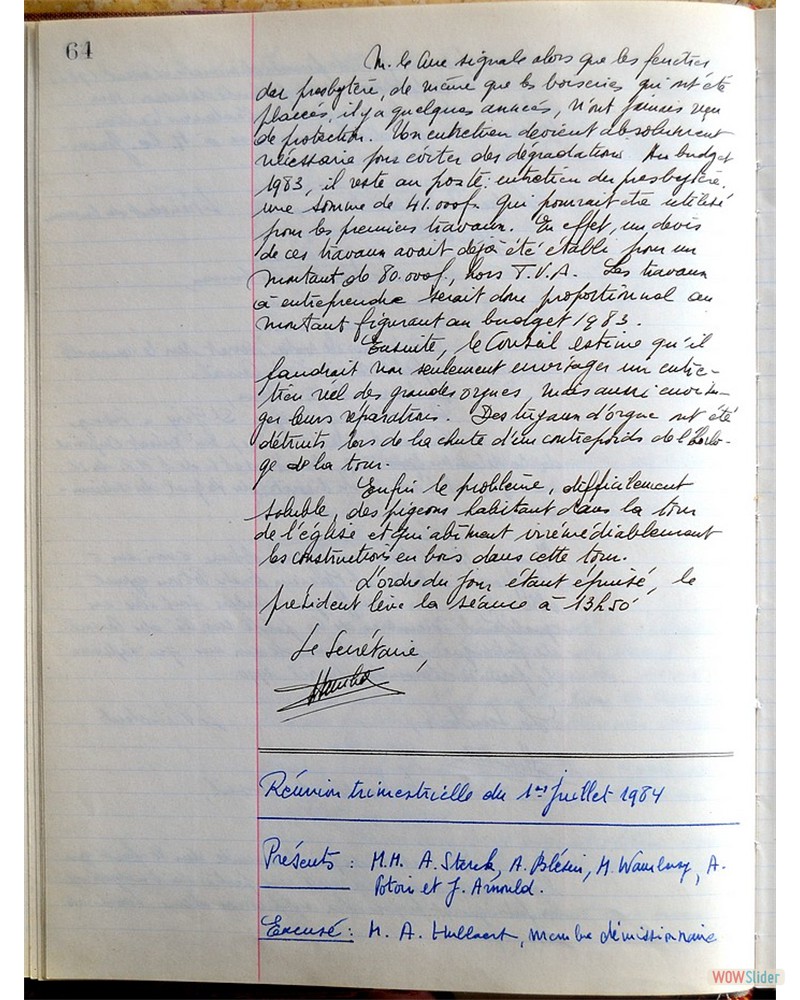 64
M. le Curé signale alors que les fenêtres
du presbytère, de même que les boiseries qui ont été
placées, il y a quelques années, n'ont jamais reçu
de protection. Un entretien devient absolument
nécessaire pour éviter des dégradations. Au budget
1983, il reste au poste: entretien du presbytère,
une somme de 41.000f. qui pourrait être utilisé
pour les premiers travaux. En effet, un devis
de ces travaux avait déjà été établi pour un
montant de 80.000f, hors T.V.A. Les travaux
à entreprendre serait donc proportionnal au
montant figurant au budget 1983.
Ensuite, le Conseil estime qu'il
faudrait non seulement envisager un entre-
tien réel des grandes orgues, mais aussi envisa-
ger leurs réparations. Des tuyaux d'orgue ont été
détruits lors de la chute d'un contrepoids de l'horlo-
ge de la tour.
Enfin le problème, difficilement
soluble, des pigeons habitant dans la tour
de l'église et qui abîment irrémédiablement
les constructions en bois dans cette tour.
L'ordre du jour étant épuisé, le
président lève la séance à 13h50
Le Secrétaire,
Réunion trimestrielle du 1er Juillet 1984
Présents : M.M. A. Sterck, A. Blésin, A.
Potoir et J. Arnould.
Excusé : M. A. Hullaert, membre démissionnaire
WOWSlider